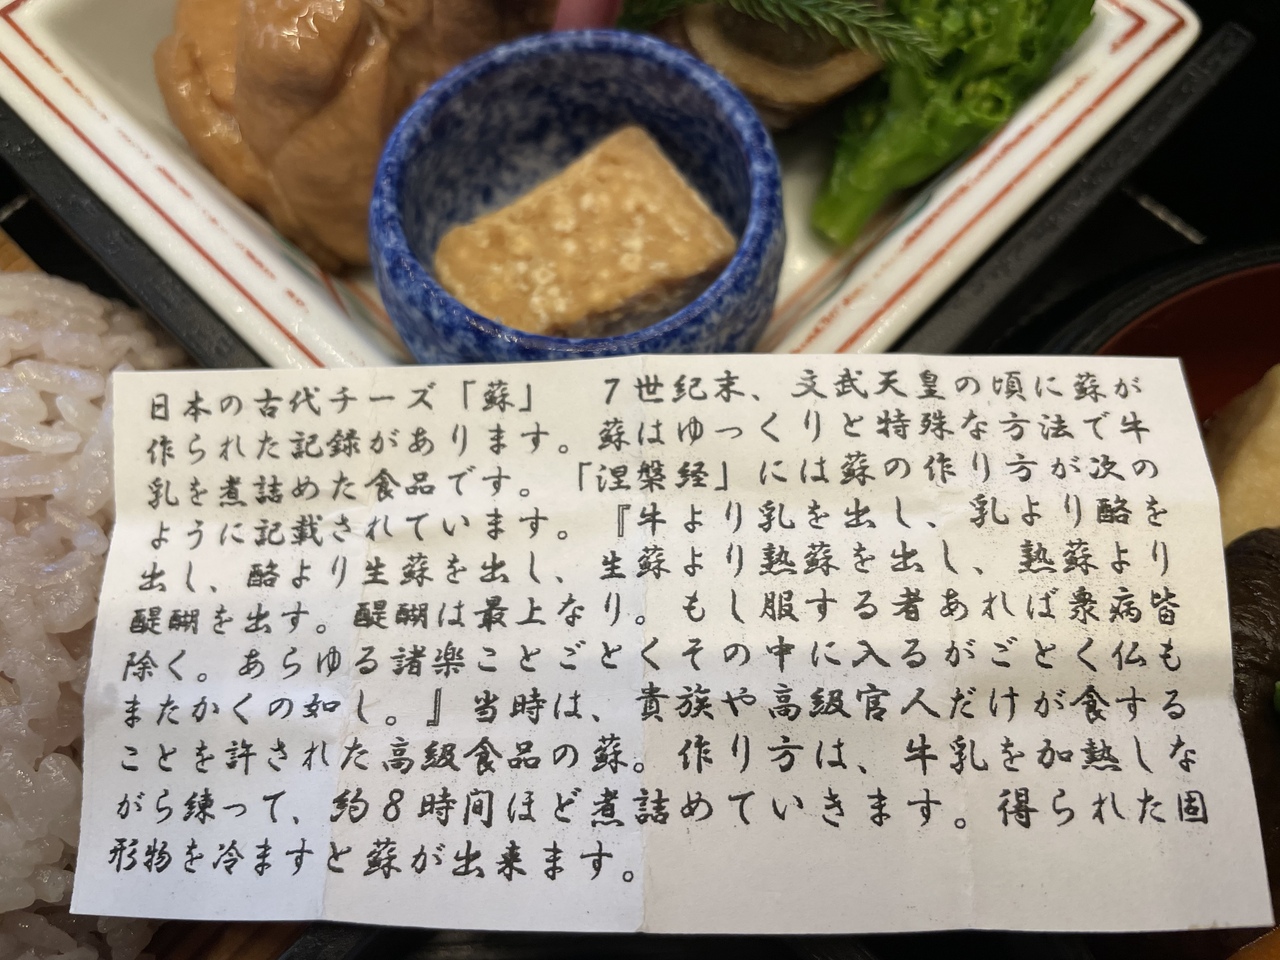 日本の古代チーズ「蘇」　7世紀末、文武天皇の頃に蘇が
作られた記録があります。蘇はゆっくりと特殊な方法で牛
乳を煮詰めた食品です。「涅槃経」には蘇の作り方が次の
ように記載されています。『牛より乳を出し、乳より酪を
出し、酪より生蘇を出し、生蘇より熟蘇を出し、熟蘇より
醍醐を出す。醍醐は最上なり。もし服する者あれば衆病皆
除く。あらゆる諸楽ことごとくその中に入るがごとく仏も
またかくの如し。』当時は、貴族や高級官人だけが食する
ことを許された高級食品の蘇。作り方は、牛乳を加熱しな
がら練って、約8時間ほど煮詰めていきます。得られた固
形物を冷ますと蘇が出来ます。